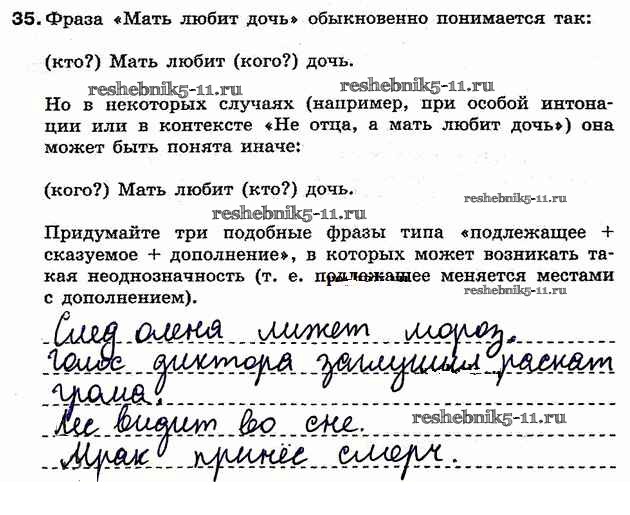 35. Фраза «Мать любит дочь» обыкновенно понимается так:
(кто?) Мать любит (кого?) дочь.
reshebnik5-11.ru
Но в некоторых случаях (например, при особой интона-
ции или в контексте «Не отца, а мать любит дочь») она
может быть понята иначе:
(кого?) Мать любит (кто?) дочь.
reshebnik5-11.ru
reshebnik5-11.ru
Придумайте три подобные фразы типа «подлежащее +
сказуемое + дополнение», в которых может возникать та-
кая неоднозначность (т. е. подлежащее меняется местами
с дополнением).
reshebnik5-11.ru
След оленя лижет мороз.
Голос диктора заглушил раскат
грома.
Лес видит во сне.
reshebnik5-11.ru
Мрак принёс смерч.